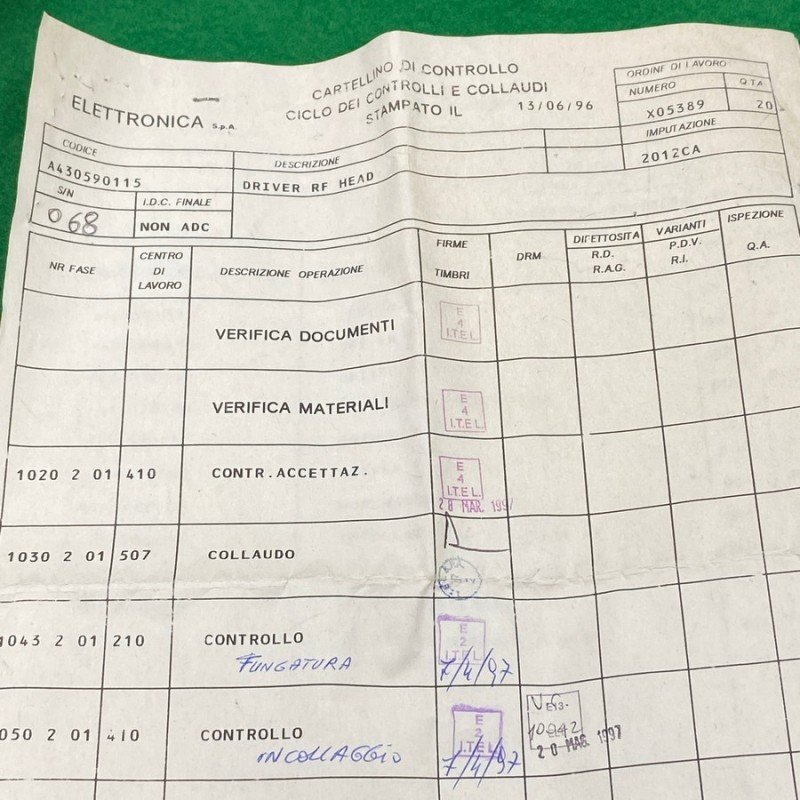 ELETTRONICA S.p.A.
CARTELLINO DI CONTROLLO
CICLO DEI CONTROLLI E COLLAUDI
STAMPATO IL 13/06/96
ORDINE DI LAVORO
NUMERO Q.TA
X05389 20
IMPUTAZIONE
2012CA
CODICE
A430590115
DESCRIZIONE
DRIVER RF HEAD
S/N
068
I.D.C. FINALE
NON ADC
NR FASE
CENTRO
DI
LAVORO
DESCRIZIONE OPERAZIONE
FIRME
TIMBRI
DRM
DIFETTOSITA
R.D.
R.A.G.
VARIANTI
P.D.V.
R.I.
ISPEZIONE
Q.A.
VERIFICA DOCUMENTI
E
4
I.T.E.L.
VERIFICA MATERIALI
E
4
I.T.E.L.
1020 2 01 410 CONTR.ACCETTAZ.
E
4
I.T.E.L.
28 MAR. 1997
1030 2 01 507 COLLAUDO
1043 2 01 210 CONTROLLO
FUNGATURA
E
2
I.T.E.L.
7/4/97
050 2 01 410 CONTROLLO
INCOLLAGGIO
E
2
I.T.E.L.
7/4/97
10942
20 MAG. 1997